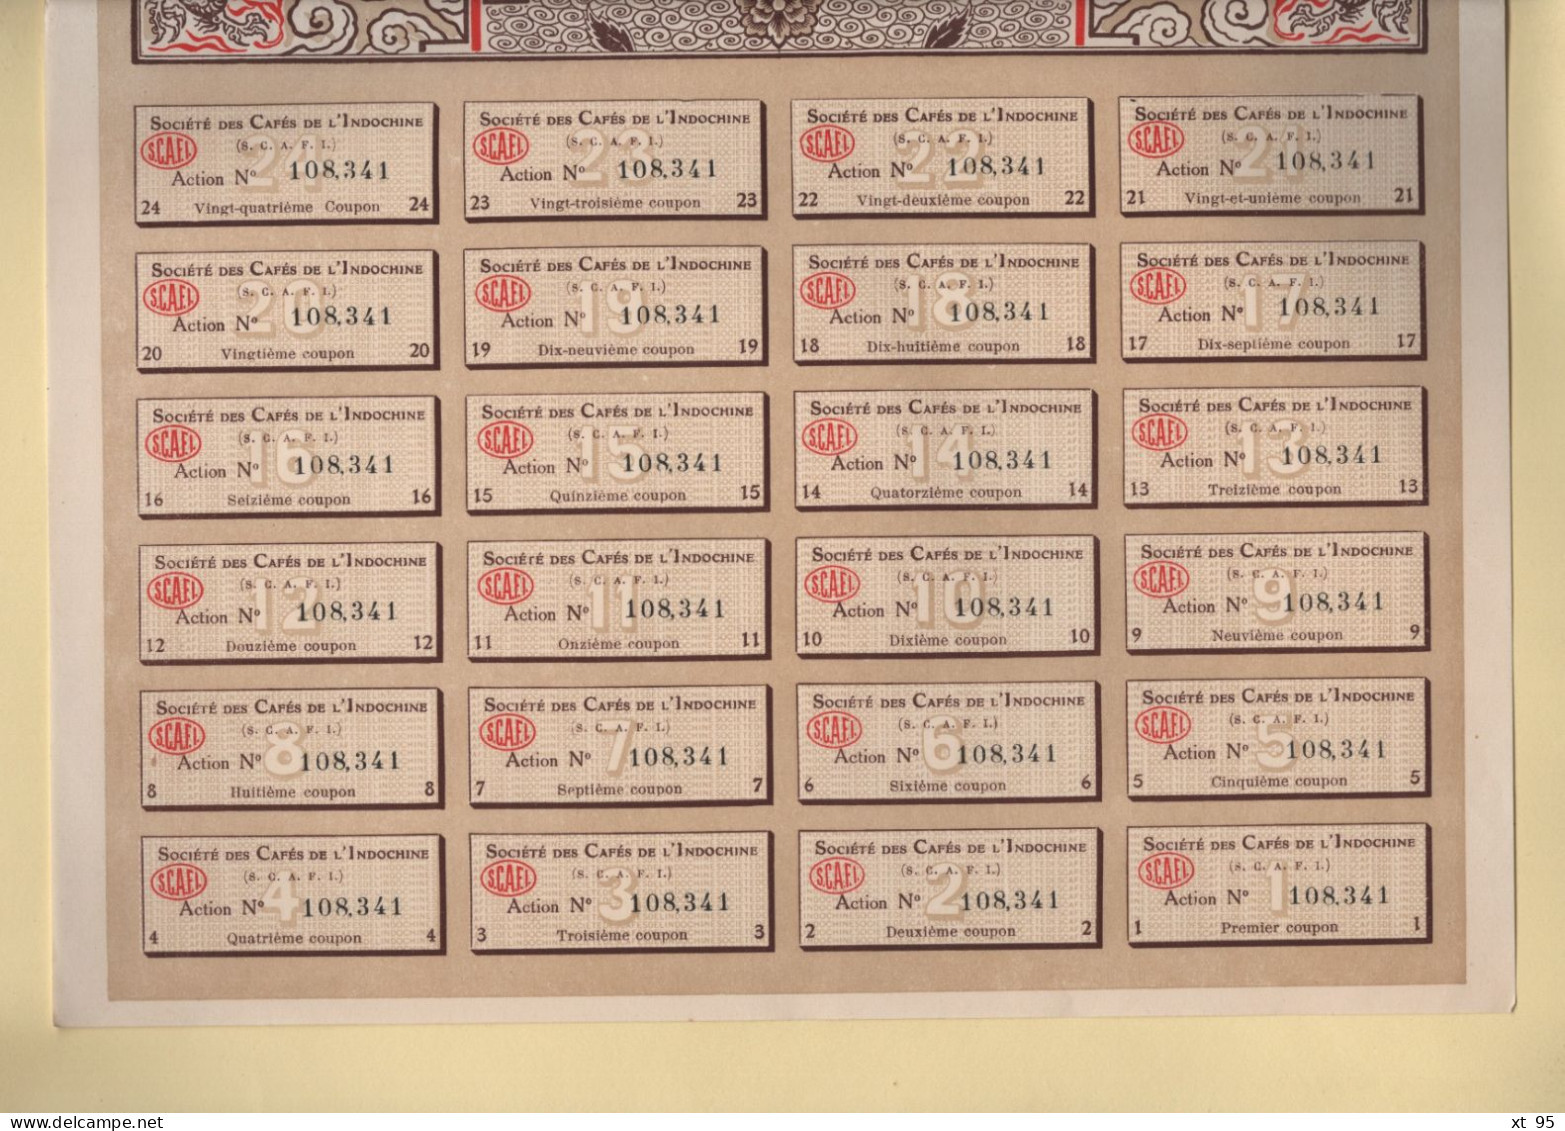 SOCIÉTÉ DES CAFÉS DE L'INDOCHINE
S.C.A.F.I.
(S. C. A. F. I.)
Action Nº 108,341
24 Vingt-quatrième Coupon 24
SOCIÉTÉ DES CAFÉS DE L'INDOCHINE
S.C.A.F.I.
(S. C. A. F. I.)
23
Action Nº 108,341
23 Vingt-troisième coupon 23
SOCIÉTÉ DES CAFÉS DE L'INDOCHINE
S.C.A.F.I.
(S. C. A. F. I.)
22
Action Nº 108,341
22 Vingt-deuxième coupon 22
SOCIÉTÉ DES CAFÉS DE L'INDOCHINE
S.C.A.F.I.
(S. C. A. F. I.)
21
Action Nº 108,341
21 Vingt-et-unième coupon 21
SOCIÉTÉ DES CAFÉS DE L'INDOCHINE
S.C.A.F.I.
(S. C. A. F. I.)
20
Action Nº 108,341
20 Vingtième coupon 20
SOCIÉTÉ DES CAFÉS DE L'INDOCHINE
S.C.A.F.I.
(S. C. A. F. I.)
19
Action Nº 108,341
19 Dix-neuvième coupon 19
SOCIÉTÉ DES CAFÉS DE L'INDOCHINE
S.C.A.F.I.
(S. C. A. F. I.)
18
Action Nº 108,341
18 Dix-huitième coupon 18
SOCIÉTÉ DES CAFÉS DE L'INDOCHINE
S.C.A.F.I.
(S. C. A. F. I.)
17
Action Nº 108,341
17 Dix-septième coupon 17
SOCIÉTÉ DES CAFÉS DE L'INDOCHINE
S.C.A.F.I.
(S. C. A. F. I.)
16
Action Nº 108,341
16 Seizième coupon 16
SOCIÉTÉ DES CAFÉS DE L'INDOCHINE
S.C.A.F.I.
(S. C. A. F. I.)
15
Action Nº 108,341
15 Quinzième coupon 15
SOCIÉTÉ DES CAFÉS DE L'INDOCHINE
S.C.A.F.I.
(S. C. A. F. I.)
14
Action Nº 108,341
14 Quatorzième coupon 14
SOCIÉTÉ DES CAFÉS DE L'INDOCHINE
S.C.A.F.I.
(S. C. A. F. I.)
13
Action Nº 108,341
13 Treizième coupon 13
SOCIÉTÉ DES CAFÉS DE L'INDOCHINE
S.C.A.F.I.
(S. C. A. F. I.)
12
Action Nº 108,341
12 Douzième coupon 12
SOCIÉTÉ DES CAFÉS DE L'INDOCHINE
S.C.A.F.I.
(S. C. A. F. I.)
11
Action Nº 108,341
11 Onzième coupon 11
SOCIÉTÉ DES CAFÉS DE L'INDOCHINE
S.C.A.F.I.
(S. C. A. F. I.)
10
Action Nº 108,341
10 Dixième coupon 10
SOCIÉTÉ DES CAFÉS DE L'INDOCHINE
S.C.A.F.I.
(S. C. A. F. I.)
9
Action Nº 108,341
9 Neuvième coupon 9
SOCIÉTÉ DES CAFÉS DE L'INDOCHINE
S.C.A.F.I.
(S. C. A. F. I.)
8
Action Nº 108,341
8 Huitième coupon 8
SOCIÉTÉ DES CAFÉS DE L'INDOCHINE
S.C.A.F.I.
(S. C. A. F. I.)
7
Action Nº 108,341
7 Septième coupon 7
SOCIÉTÉ DES CAFÉS DE L'INDOCHINE
S.C.A.F.I.
(S. C. A. F. I.)
6
Action Nº 108,341
6 Sixième coupon 6
SOCIÉTÉ DES CAFÉS DE L'INDOCHINE
S.C.A.F.I.
(S. C. A. F. I.)
5
Action Nº 108,341
5 Cinquième coupon 5
SOCIÉTÉ DES CAFÉS DE L'INDOCHINE
S.C.A.F.I.
(S. C. A. F. I.)
4
Action Nº 108,341
4 Quatrième coupon 4
SOCIÉTÉ DES CAFÉS DE L'INDOCHINE
S.C.A.F.I.
(S. C. A. F. I.)
3
Action Nº 108,341
3 Troisième coupon 3
SOCIÉTÉ DES CAFÉS DE L'INDOCHINE
S.C.A.F.I.
(S. C. A. F. I.)
2
Action Nº 108,341
2 Deuxième coupon 2
SOCIÉTÉ DES CAFÉS DE L'INDOCHINE
S.C.A.F.I.
(S. C. A. F. I.)
1
Action Nº 108,341
1 Premier coupon 1
www.delcampe.net
xt 95